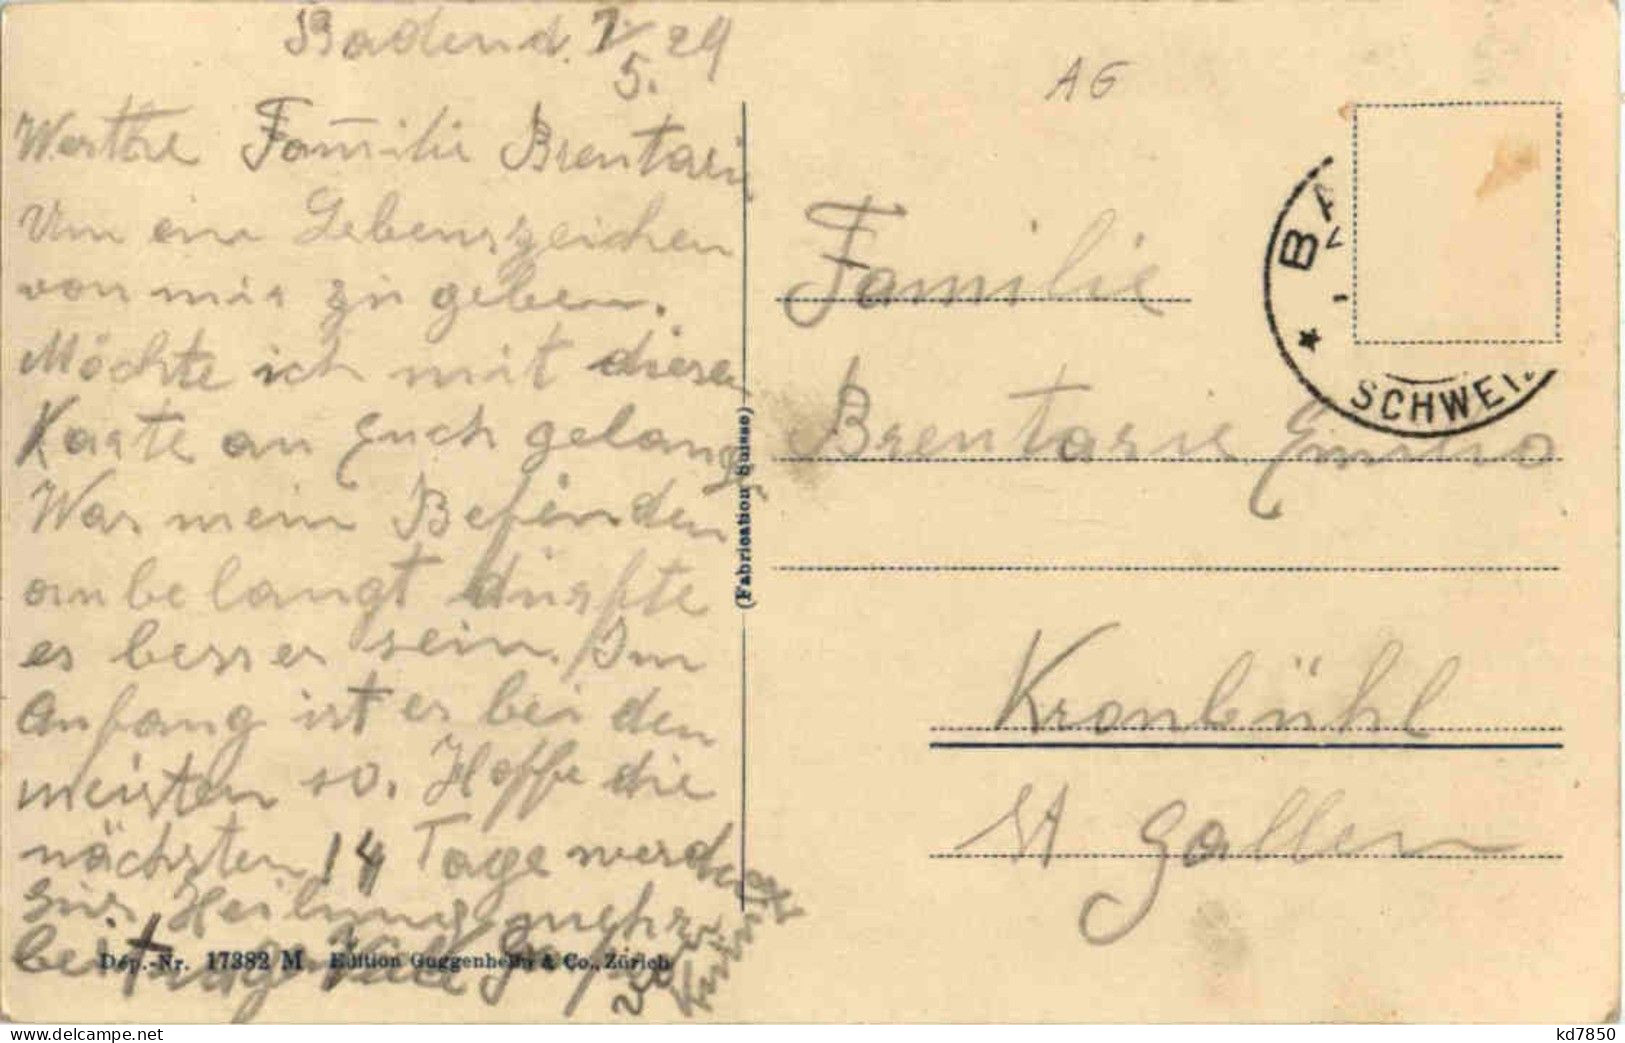 Baden d. 7/5. 24
Werthe Familie Brentari
Um ein Lebenszeichen
von mir zu geben.
Möchte ich mit diser
Karte an Euch gelangen
Was mein Befinden
anbelangt dürfte
es besser sein. Im
Anfang ist es bei den
meisten so. Hoffe die
nächsten 14 Tage werden
zur Heilung mehr
beitragen Viele
Dép.-Nr. 17382 M Edition Guggenheim & Co., Zürich
(Fabrication Suisse)
AG
BA
SCHWEIZ
Familie
Brentarie Emilio
Kronbühl
St Gallen
kd7850